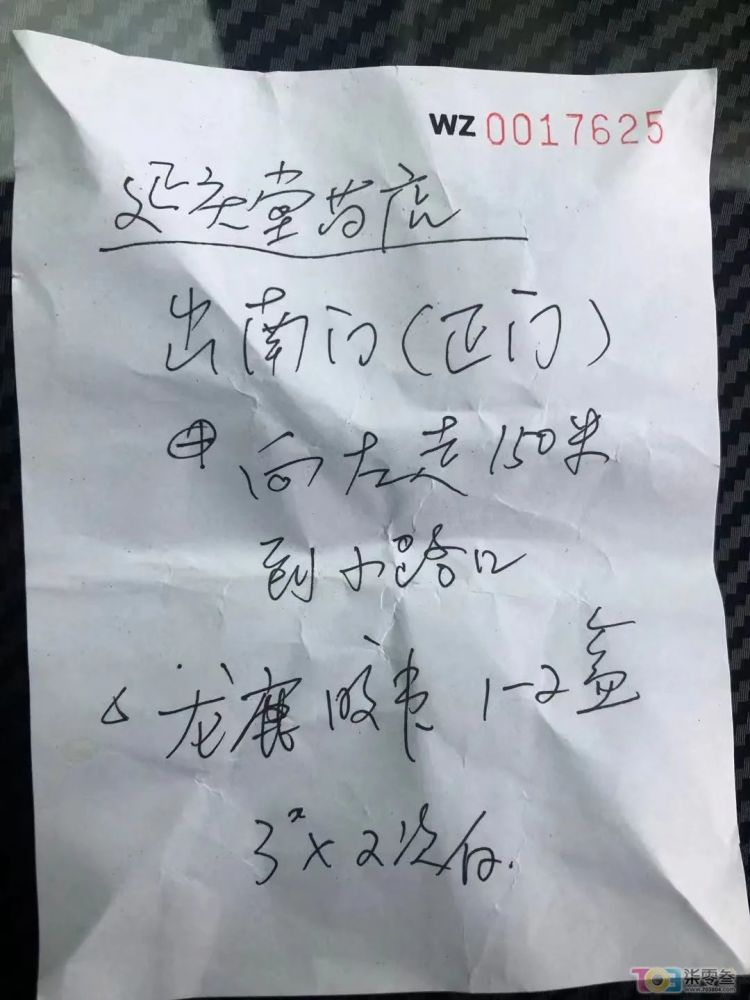 WZ 0017625
延天堂药店
出南门(正门)
向左走150米
到小路口
龙鹿胶囊 1-2盒
3 x 2次/日.
柒零叁
www.703804.com